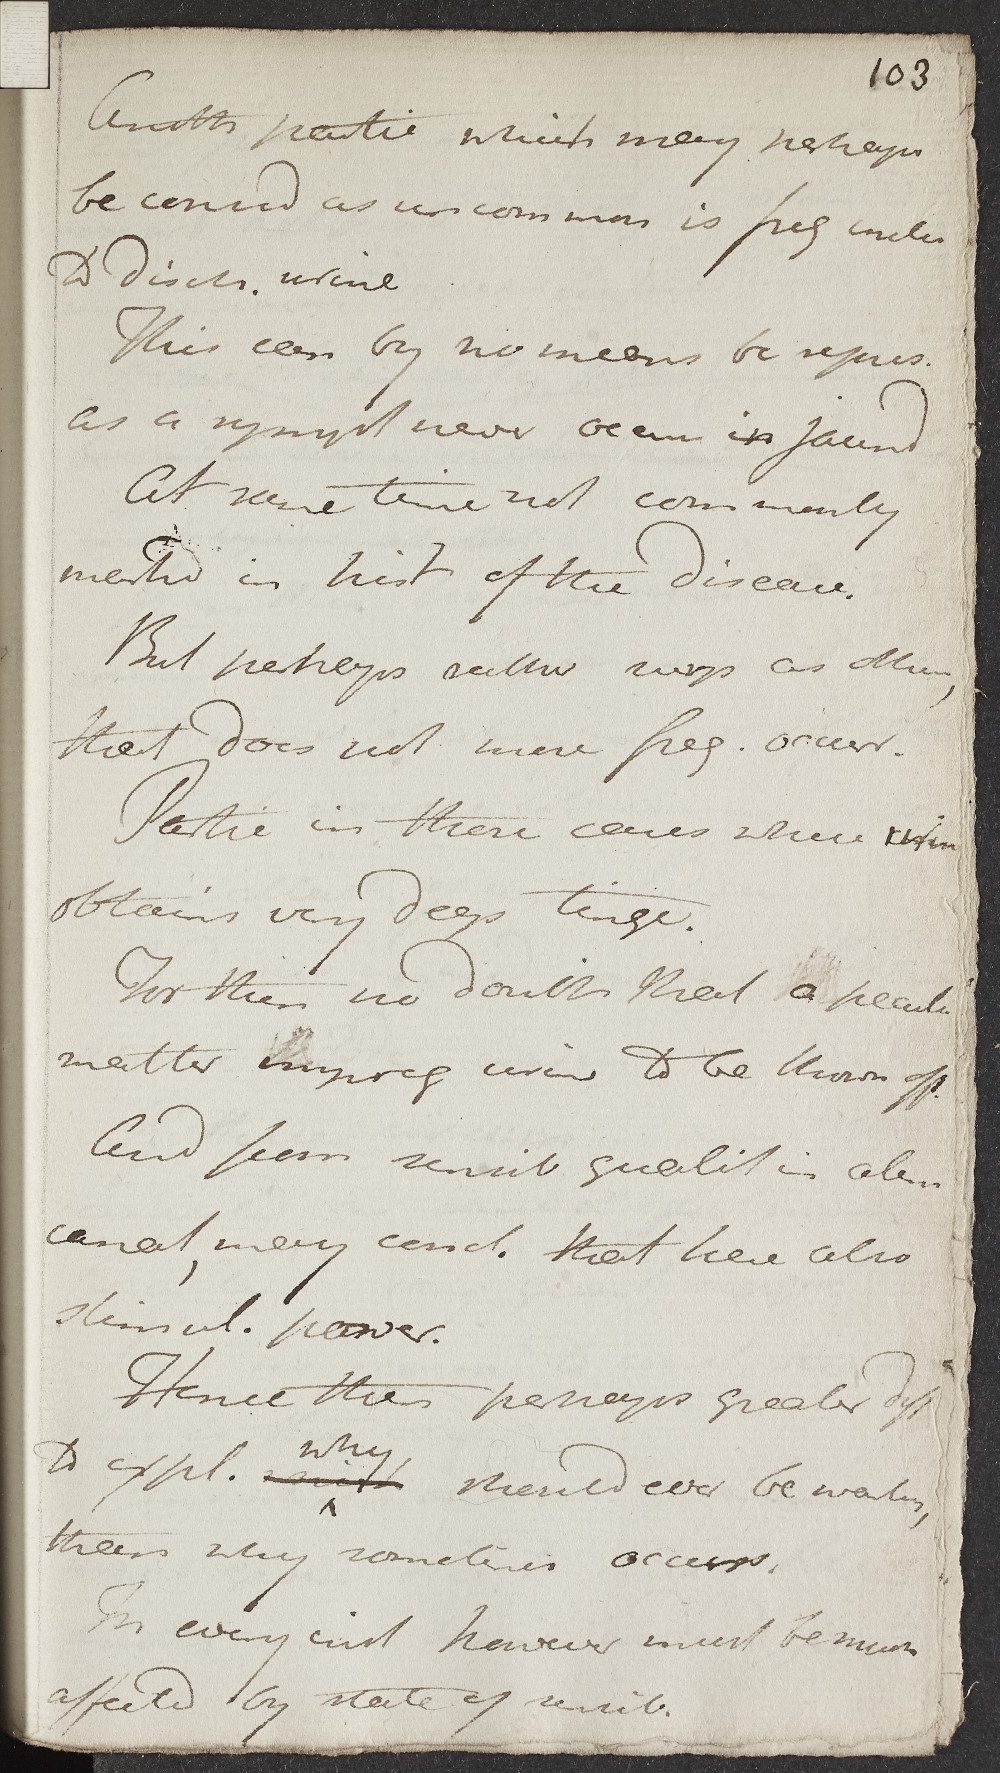 103
Anoth partic which may perhaps
be consid as uncommon is freq
to disch. urine
This can by no means be repres.
as a sympt never occur in jaund
At same time not commonly
mentd in hist of the disease.
But perhaps rather surp as other,
that does not more freq. occurr.
Partic in those cases where urin
obtains very deep tinge.
For then no doubt that a peculi
matter impreg urine to be thrown off.
And from sensib qualit in alim
canal, may concl. that here also
stimul. power.
Hence then perhaps greater diff
to expl. why should ever be wanting,
than why sometimes occurs.
In every inst however must be much
affected by state of sensib.